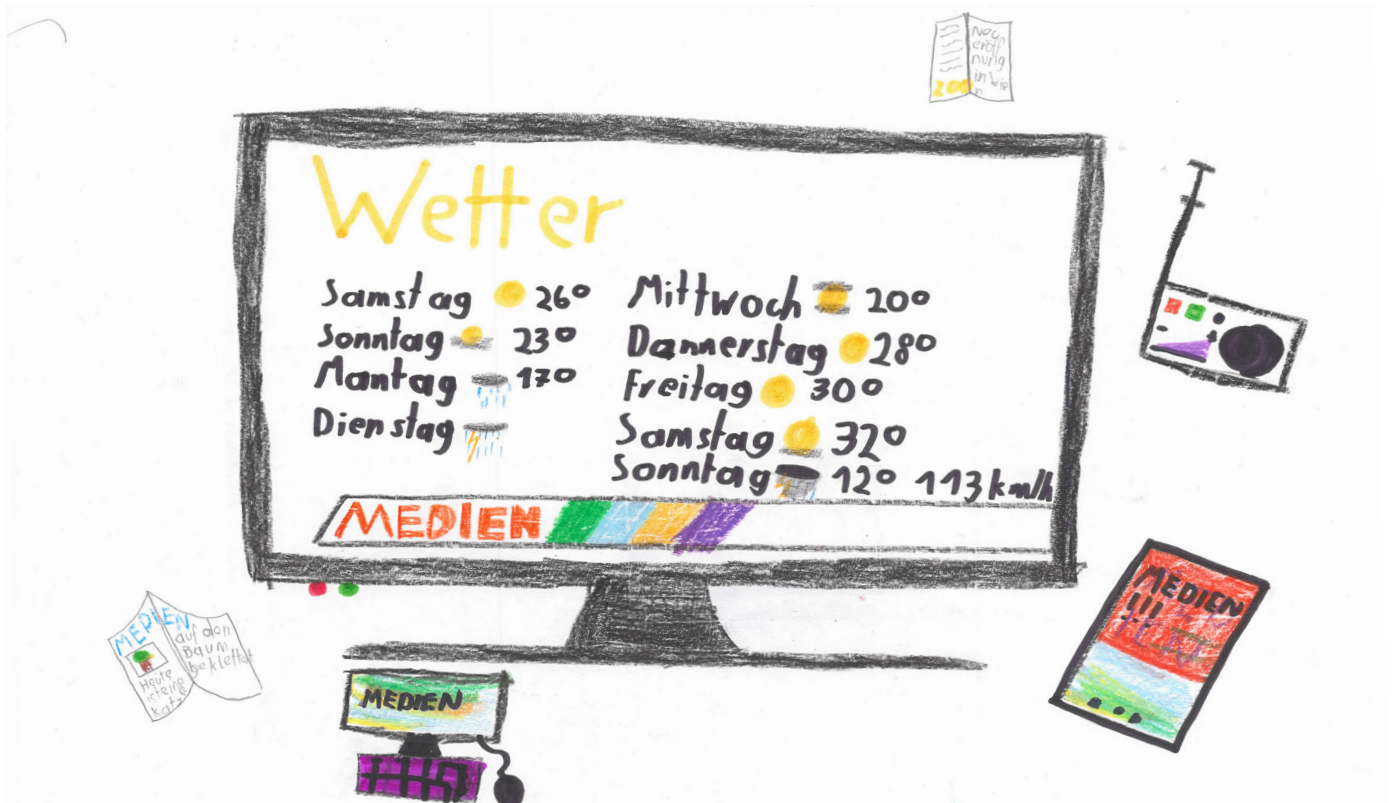 Neue
eröff
nung
in Wie
n
Wetter
Samstag 26°
Sonntag 23°
Mantag 17°
Dienstag
Mittwoch 20°
Dannerstag 28°
Freitag 30°
Samstag 32°
Sonntag 12° 113 km/h
MEDIEN
MEDIEN
Heute
ist eine
Katz
auf den
Baum
geklettert
MEDIEN
MEDIEN
!!!